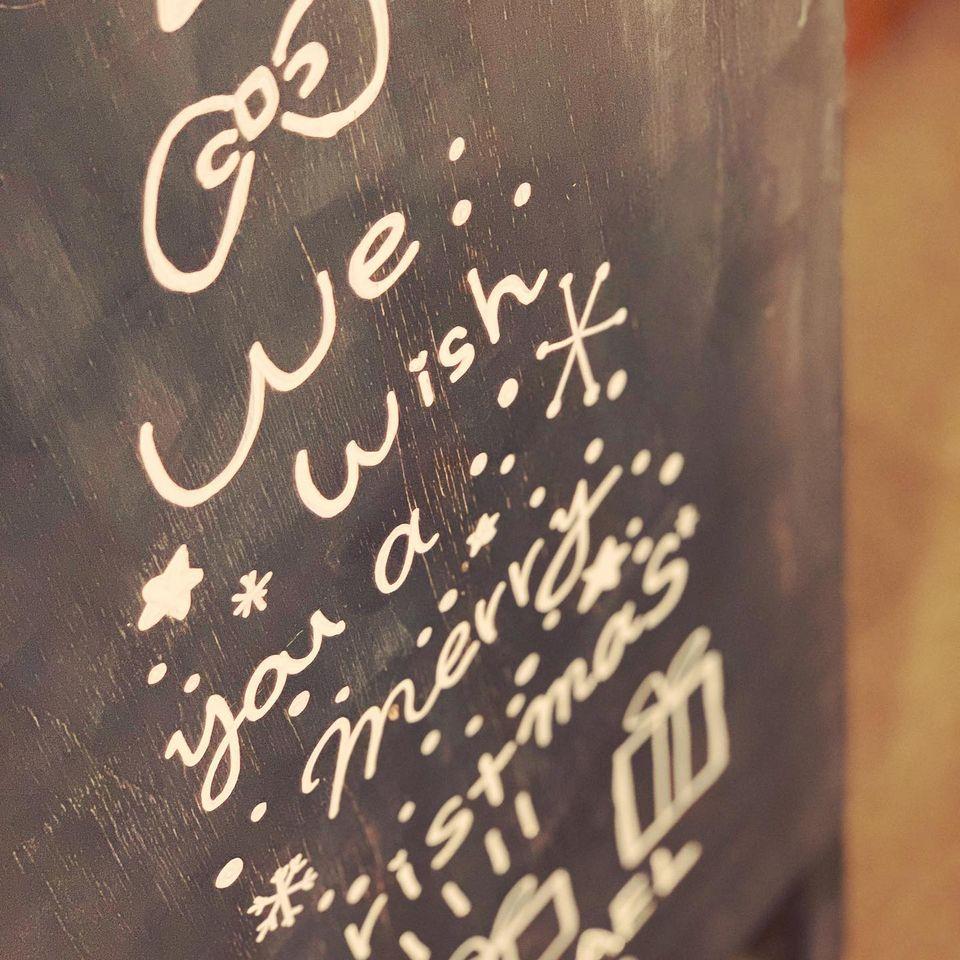 We
wish
you a
merry
ristmas